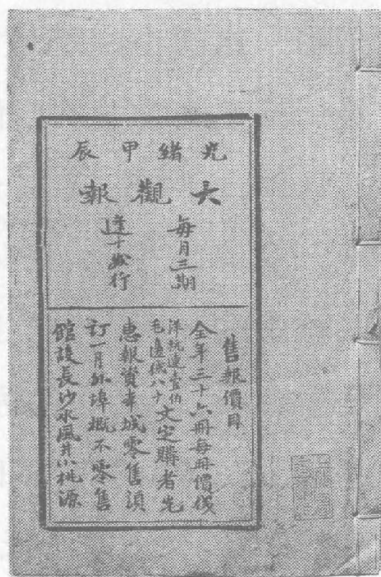 光緒甲辰
大觀報
每月三期
逢十發行
售報價目
全年三十六冊每冊價伐
洋紙連壹伯
毛邊伐八十
文定購者先
惠報資本城零售須
訂一月外埠概不零售
館設長沙水風井小桃源